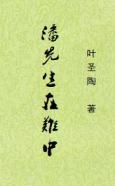 潘先生在難中
叶圣陶 著